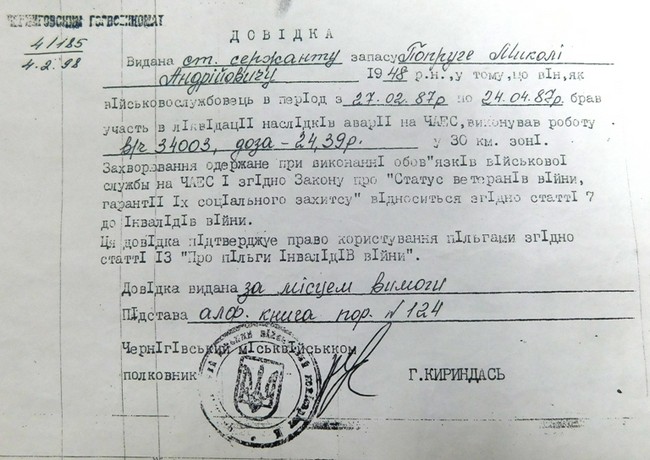 ЧЕРНІГОВСЬКИЙ
4/185
4.2.98
ДОВІДКА
Видана ст. сержанту запасу Попруге Миколі
Андрійовичу 1948 р.н., у тому, що він, як
військовослужбовець в період з 27.02.87р по 24.04.87р брав
участь в ліквідації наслідків аварії на ЧАЕС, виконував роботу
в/ч 34003, доза – 24,39р. у 30 км. зоні.
Захворювання одержане при виконанні обов"язків військової
служби на ЧАЕС і згідно Закону про "Статус ветеранів війни,
гарантії їх соціального захисту" відноситься згідно статті 7
до інвалідів війни.
Ця довідка підтверджує право користування пільгами згідно
статті ІЗ "Про пільги інвалідів війни".
Довідка видана за місцем вимоги
Підстава алф. книга пор. N 124
Чернігівський міськвійськком
полковник Г.КИРИНДАСЬ